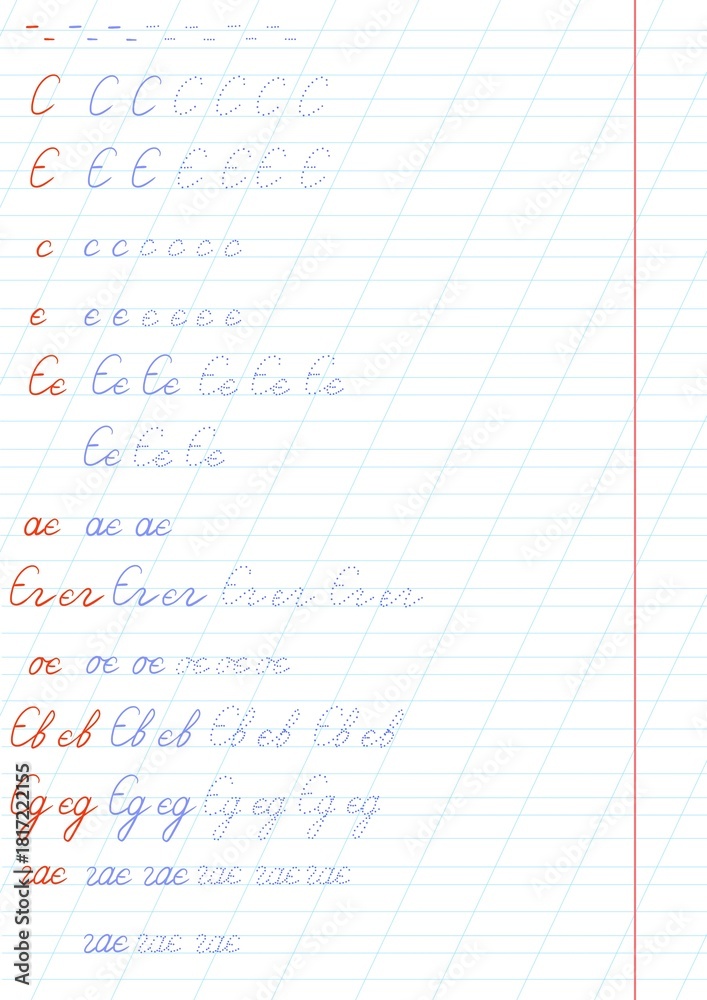 С С С С С С С
Є Є Є Є Є Є Є
с с с с с с с
є є є є є є є
Єє Єє Єє Єє Єє Єє
Єє Єє Єє
ає ає ає
Єг єг Єг єг Єг єг Єг єг
оє оє оє оє оє оє
Єв єв Єв єв Єв єв Єв єв
Єд єд Єд єд Єд єд Єд єд
гає гає гає гає гає гає
гає гає гає
Adobe Stock | #1817222155